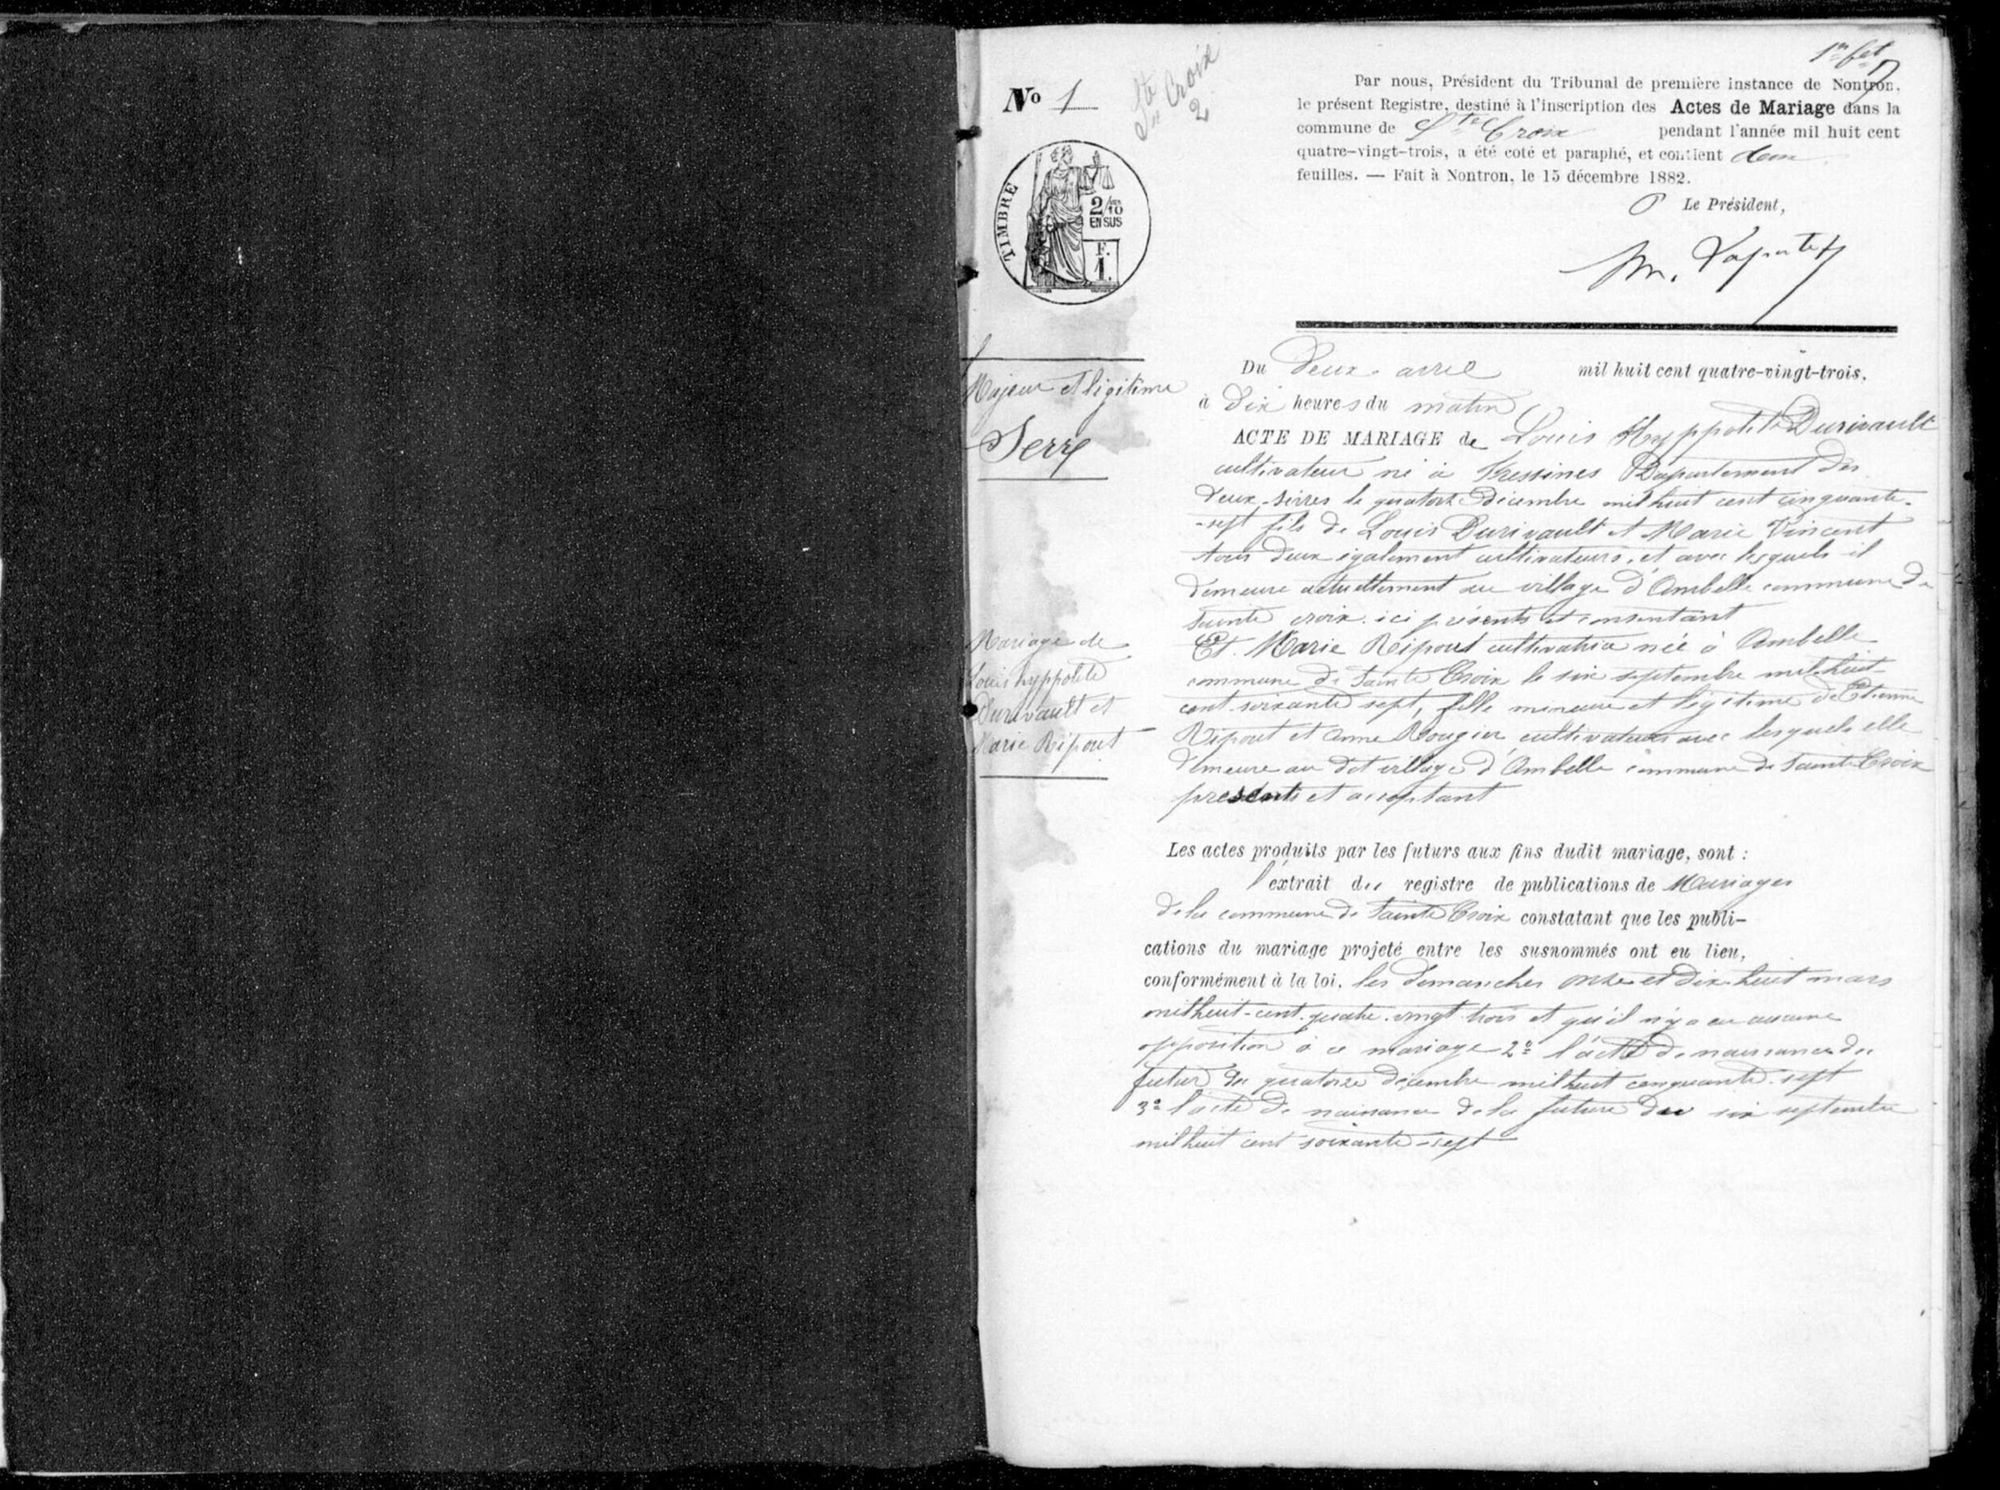 1er fet
No 1
Ste Croix
2
Par nous, Président du Tribunal de première instance de Nontron,
le présent Registre, destiné à l'inscription des Actes de Mariage dans la
commune de Ste Croix pendant l'année mil huit cent
quatre-vingt-trois, a été coté et paraphé, et contient deux
feuilles. — Fait à Nontron, le 15 décembre 1882.
Le Président,
TIMBRE
2/10
EN SUS
F.
1.
Majeur et légitime
Serre
Mariage de
Louis hyppolite
Durivault et
Marie Ripout
Du Deux avril mil huit cent quatre-vingt-trois,
à Dix heures du matin
ACTE DE MARIAGE de Louis Hyppolite Durivault
cultivateur né à Fressines Département des
Deux-Sèvres le quatorze Décembre mil huit cent cinquante-
-sept fils de Louis Durivault et Marie Vincent
tous deux également cultivateurs, et avec lesquels il
demeure actuellement au village d'Ambelle commune de
Sainte croix ici présents et consentant
Et Marie Ripout cultivatrice née à Ambelle
commune de Sainte Croix le six septembre mil huit
cent soixante sept, fille mineure et légitime de Etienne
Ripout et Anne Rougier cultivateurs avec lesquels elle
demeure au dit village d'Ambelle commune de Sainte Croix
présents et acceptant
Les actes produits par les futurs aux fins dudit mariage, sont :
l'extrait du registre de publications de Mariages
de la commune de Sainte Croix constatant que les publi-
cations du mariage projeté entre les susnommés ont eu lieu,
conformément à la loi, les dimanches onze et dix-huit mars
mil huit-cent-quatre-vingt-trois et qu'il n'y a eu aucune
opposition à ce mariage 2º l'acte de naissance du
futur du quatorze décembre mil huit cinquante-sept
3º l'acte de naissance de la future du six septembre
mil huit cent soixante-sept